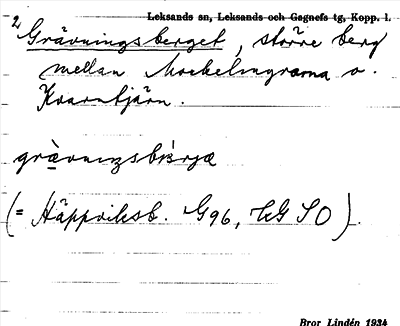 Leksands sn, Leksands och Gagnefs tg, Kopp. l.
2 Grävningsberget, större berg
mellan Mockelmyrarna o.
Kvarntjärn.
grävnɪŋsbærjæ
(= Häppviksb. G96, HG SO).
Bror Lindén 1934